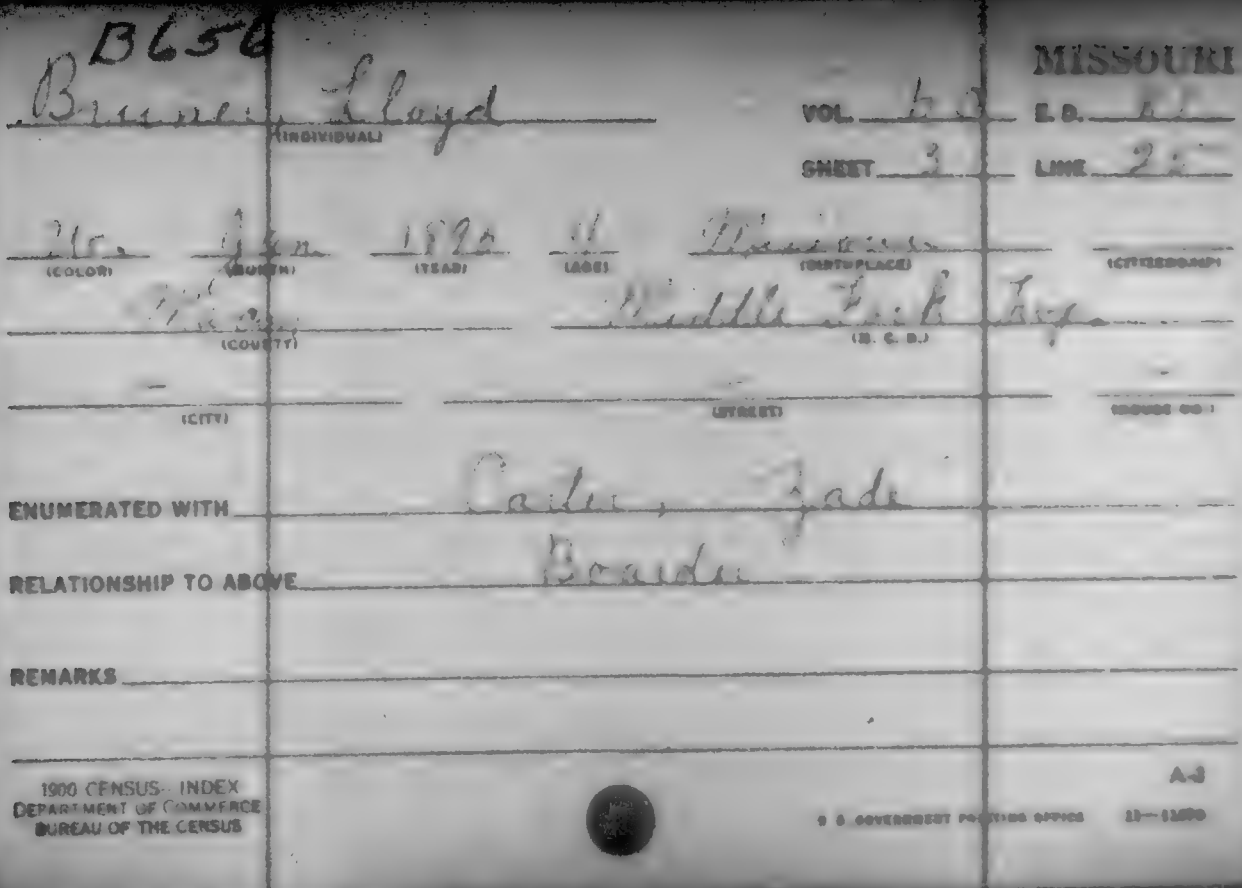 B656
MISSOURI
Bruner, Lloyd
VOL. E. D.
(INDIVIDUAL)
SHEET 3 LINE 25
Jan
(COLOR) (MONTH) (YEAR) (AGE) (BIRTHPLACE) (CITIZENSHIP)
Macon Middle Fork Twp.
(COUNTY) (M. C. D.)
- - -
(CITY) (STREET) (HOUSE NO.)
ENUMERATED WITH Carter, Zade
RELATIONSHIP TO ABOVE Boarder
REMARKS
1900 CENSUS--INDEX A-2
DEPARTMENT OF COMMERCE
BUREAU OF THE CENSUS
U S GOVERNMENT PRINTING OFFICE